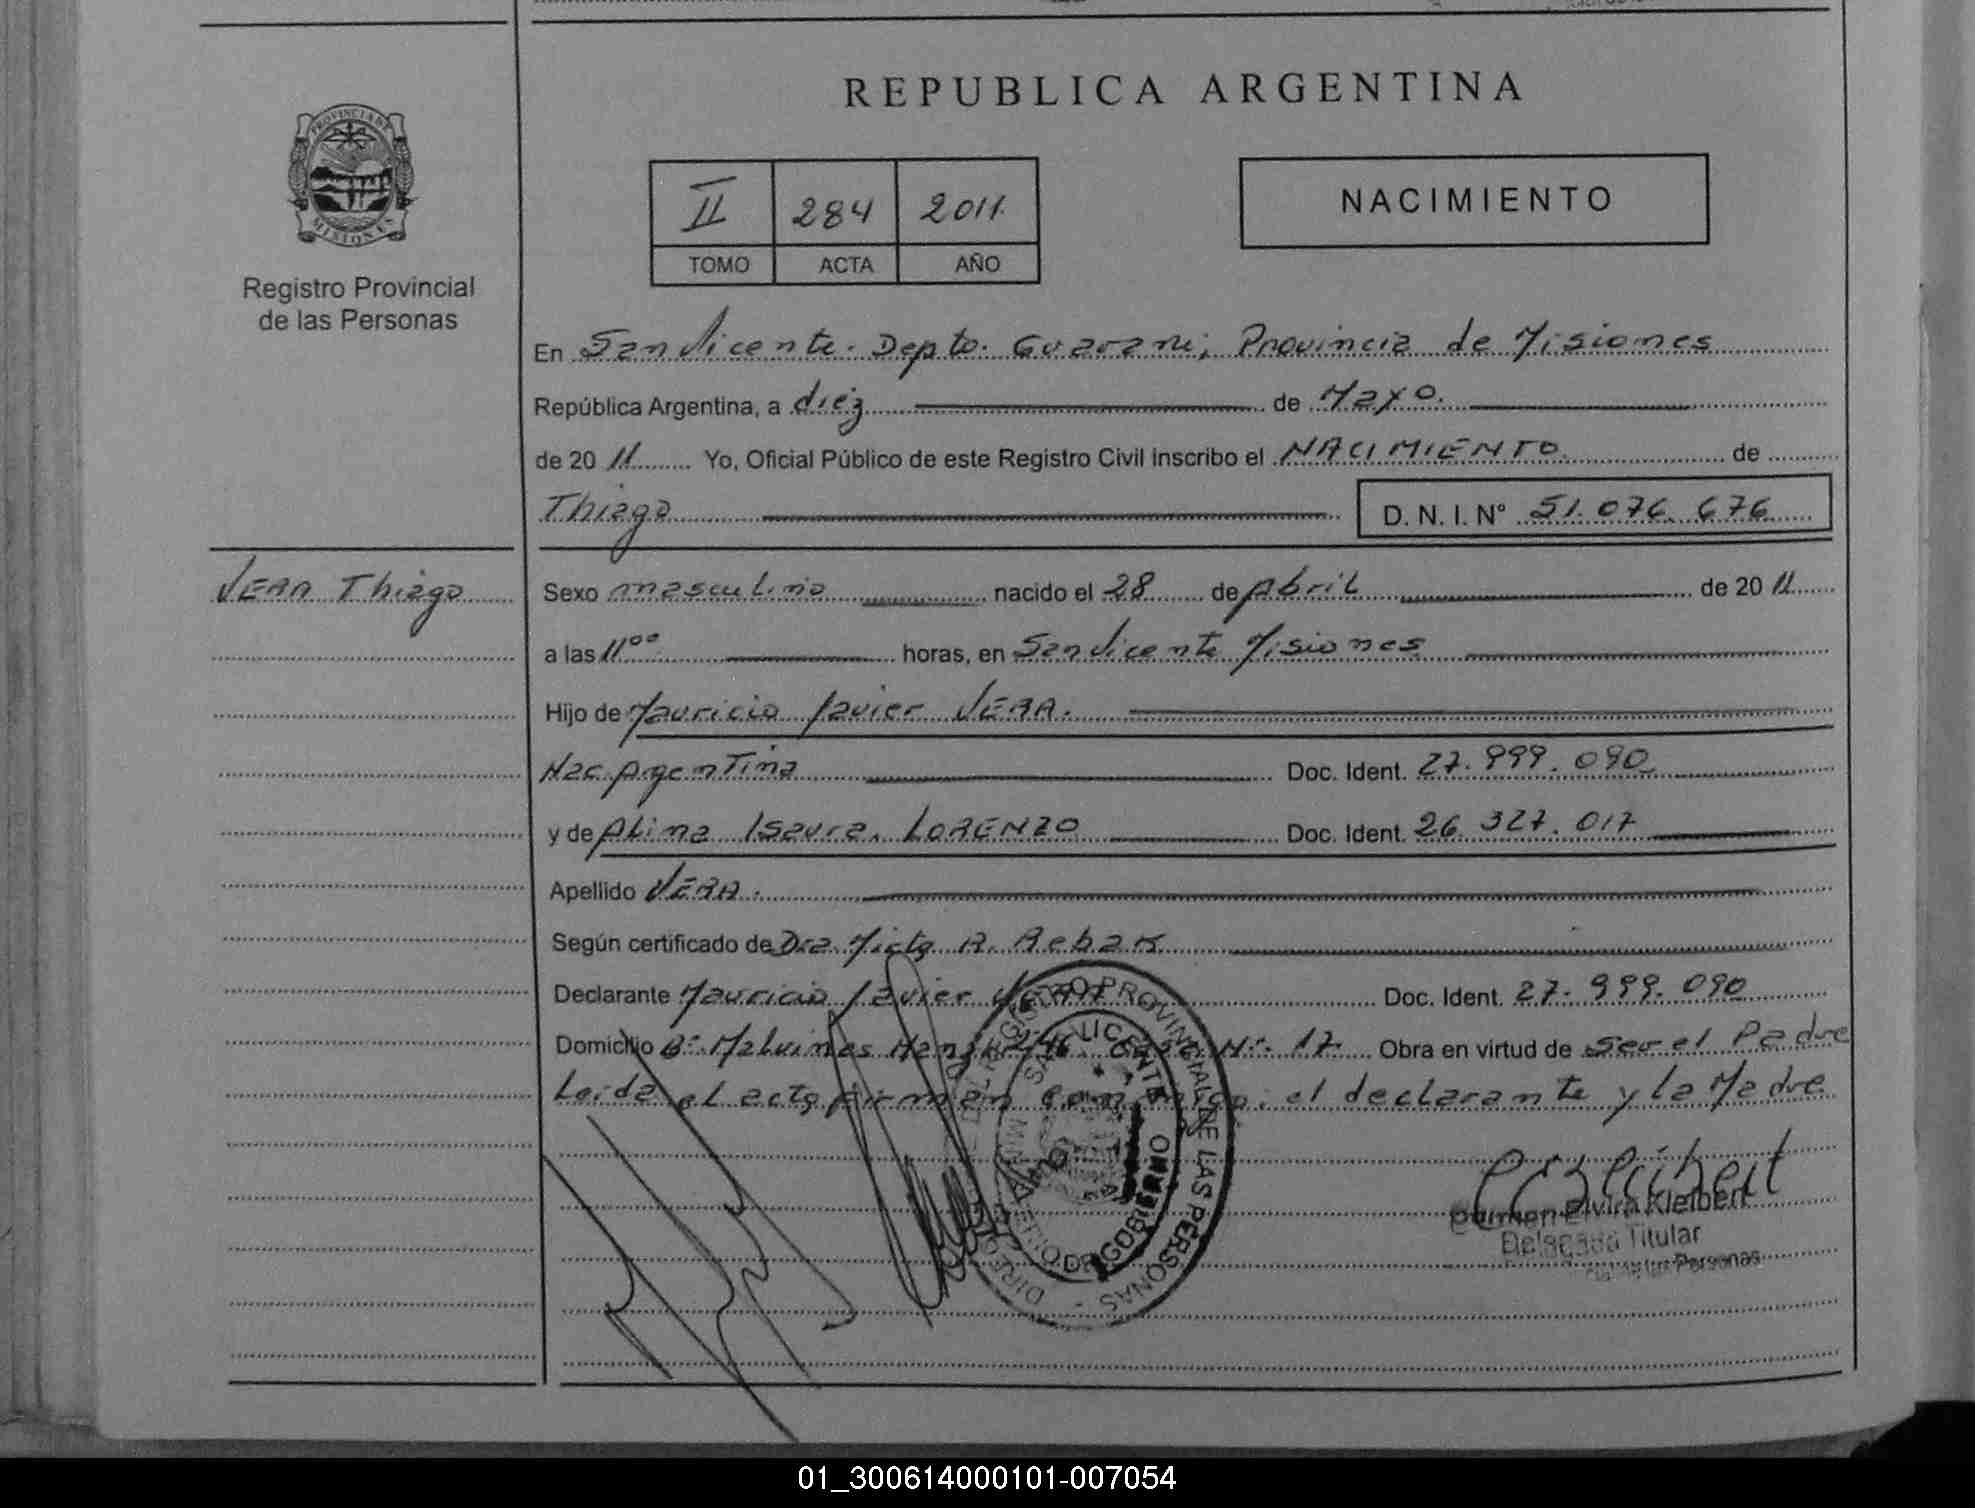 REPUBLICA ARGENTINA
PROVINCIA DE
MISIONES
Registro Provincial
de las Personas
II 284 2011.
TOMO ACTA AÑO
NACIMIENTO
En San Vicente. Depto. Guarani, Provincia de Misiones
República Argentina, a diez de Mayo.
de 20 11 Yo, Oficial Público de este Registro Civil inscribo el NACIMIENTO de
Thiago D. N. I. N° 51.076.676
VERA Thiago
Sexo masculino nacido el 28 de Abril de 20 11
a las 11°° horas, en San Vicente Misiones
Hijo de Mauricio Javier VERA.
Nac. Argentina Doc. Ident. 27.999.090
y de Albina Isaura LORENZO Doc. Ident. 26.327.017
Apellido VERA.
Según certificado de Dra. A.
Declarante Mauricio Javier Doc. Ident. 27.999.090
Domicilio B° Malvinas N° 17 Obra en virtud de ser el Padre
Leida el acta firman el declarante y la Madre
REGISTRO PROVINCIAL DE LAS PERSONAS
SAN VICENTE
DE GOBIERNO
Carmen Elvira Kleibert
Delegada Titular
de las Personas
01_300614000101-007054